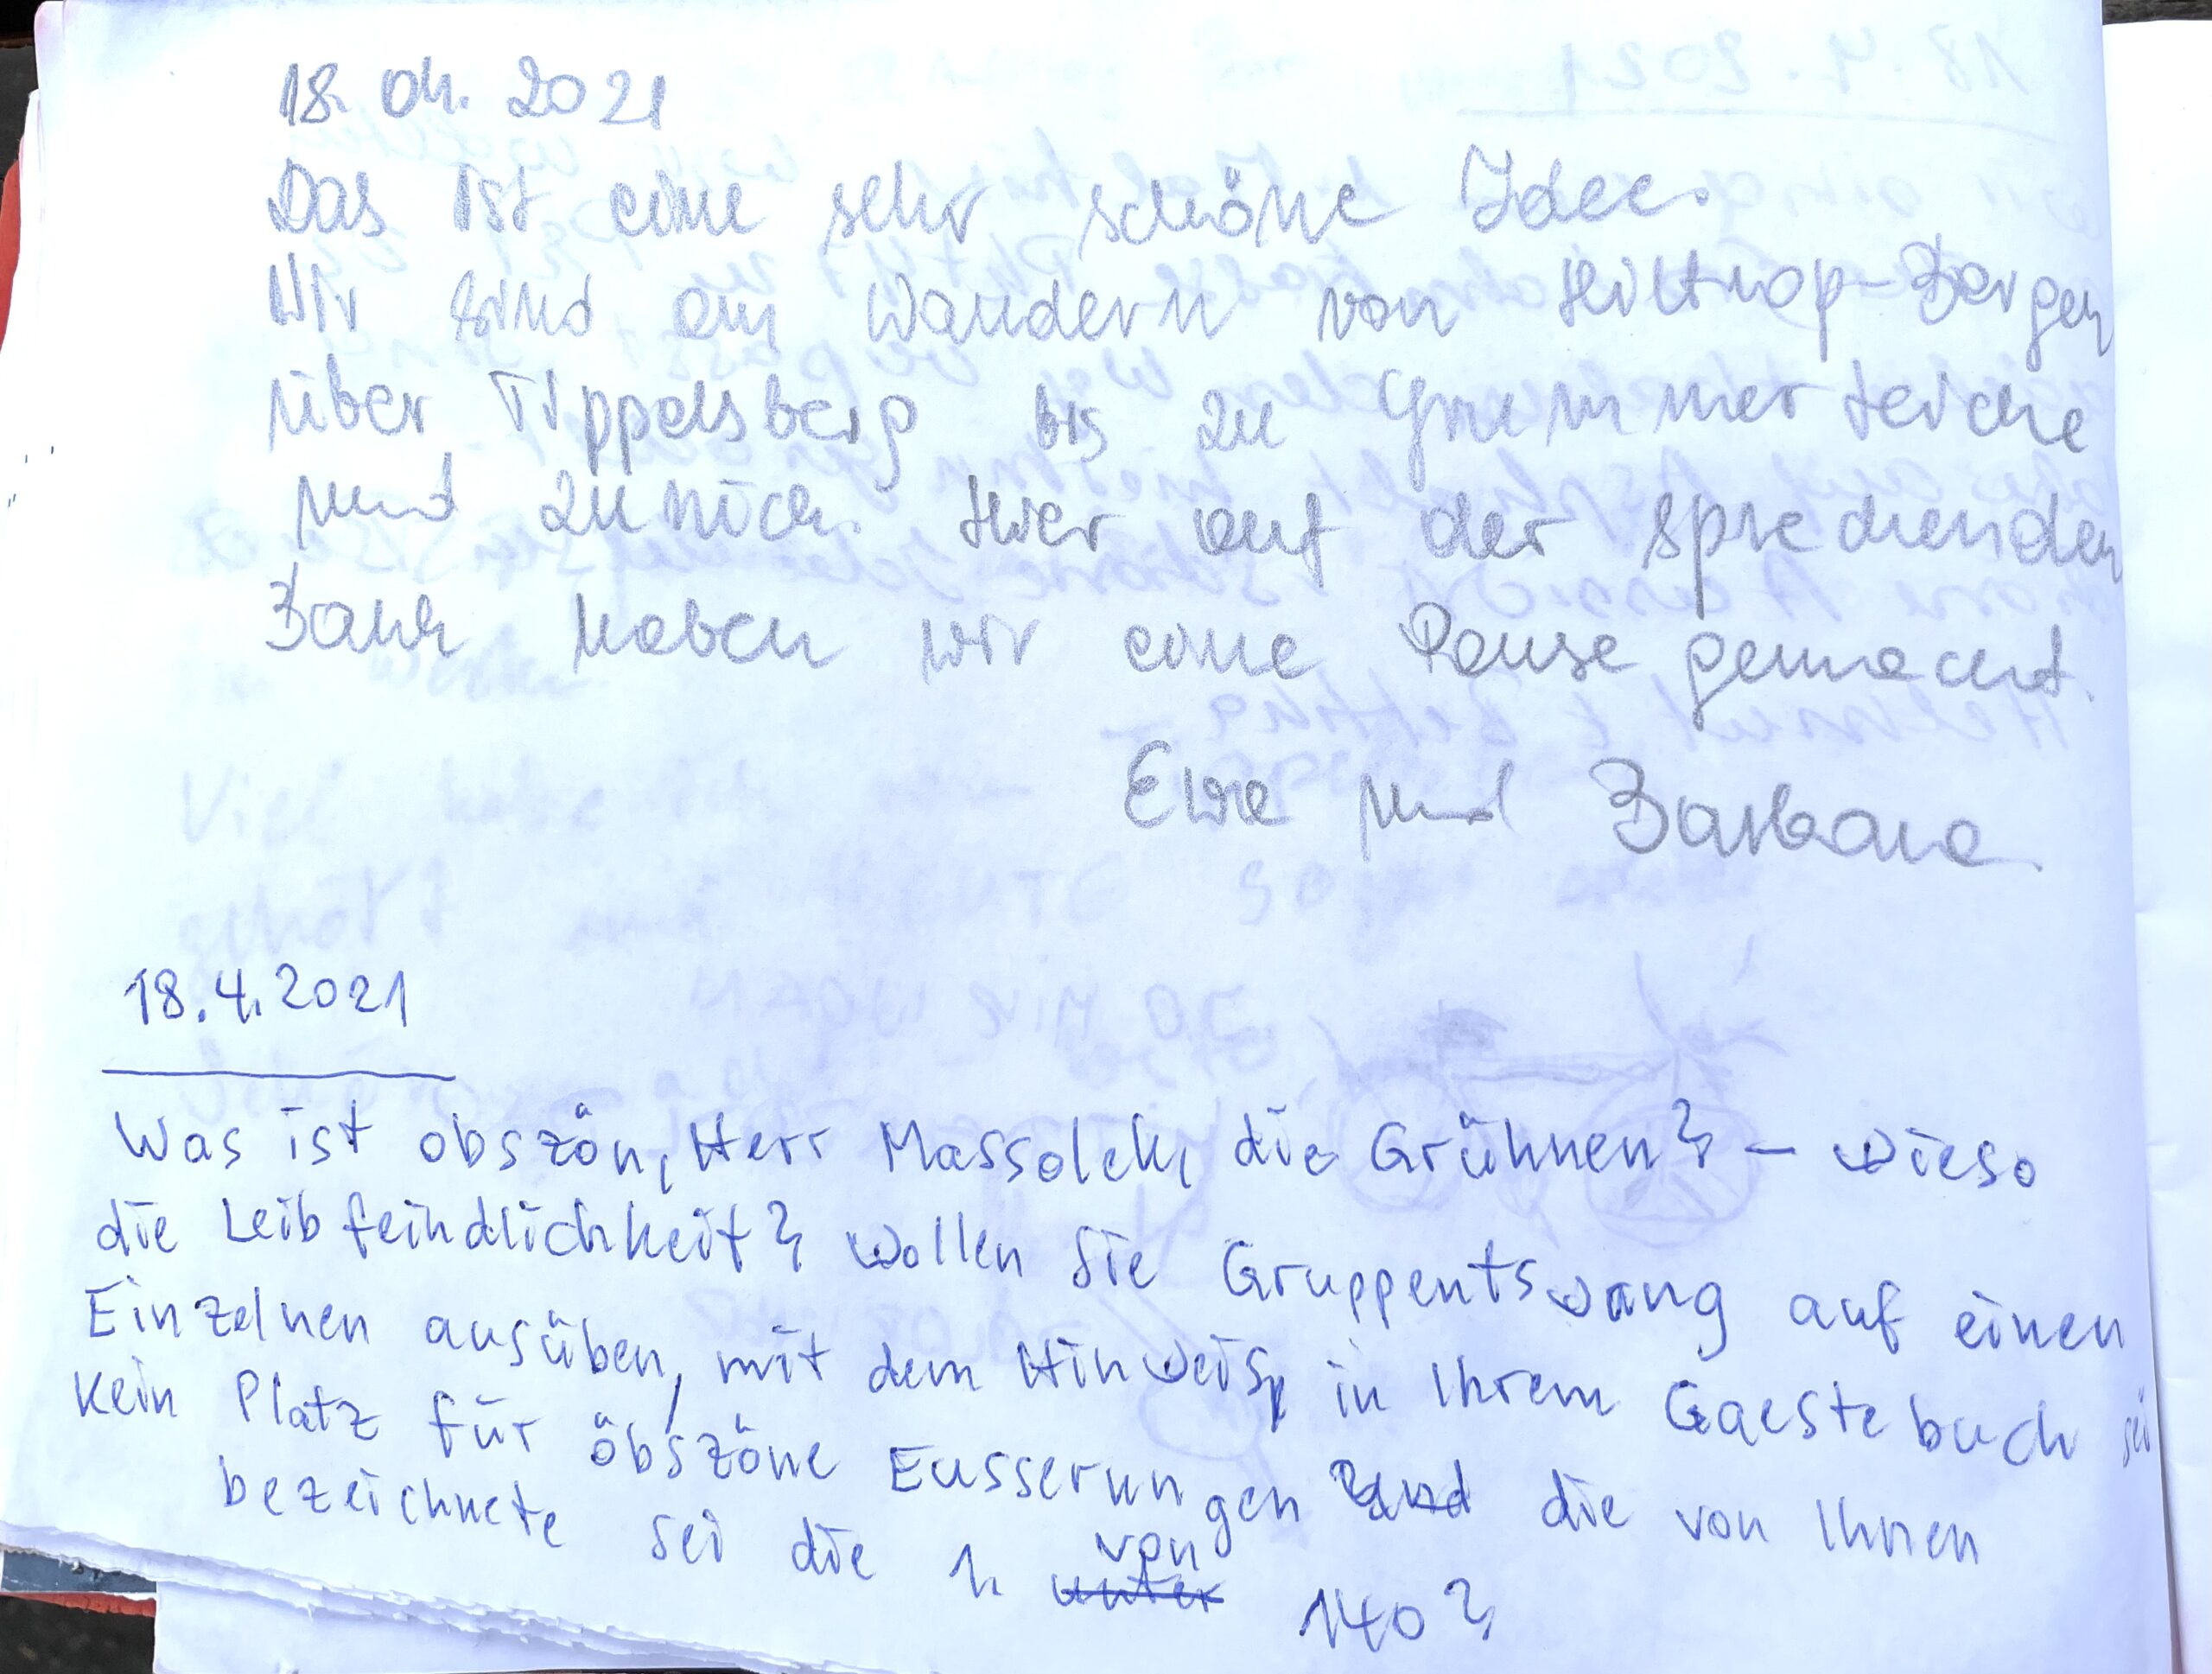 18. 04. 2021
Das ist eine sehr schöne Idee.
Wir sind am Wandern von Hiltrop-Bergen
über Tippelsberg bis zu Grummerteiche
und zurück. Hier auf der sprechenden
Bank haben wir eine Pause gemacht.
Ewa und Barbara
18.4.2021
Was ist obszön, Herr Massolek, die Grühnen? – Wieso
die Leibfeindlichkeit? Wollen Sie Gruppentswang auf einen
Einzelnen ausüben, mit dem Hinweis, in Ihrem Gaestebuch sei
kein Platz für öbszöne Eusserungen und die von Ihnen
bezeichnete sei die 1. von 140?